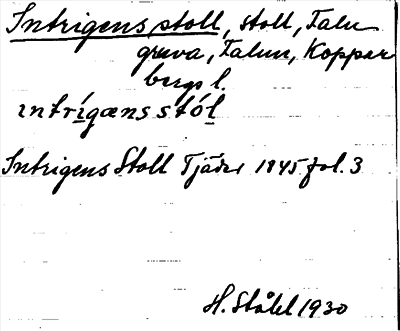 Intrigens stoll, stoll, Falu
gruva, Falun, Koppar
bergs l.
ıntrígæns stól
Intrigens Stoll Tjäder 1845 fol. 3
H. Ståhl 1930